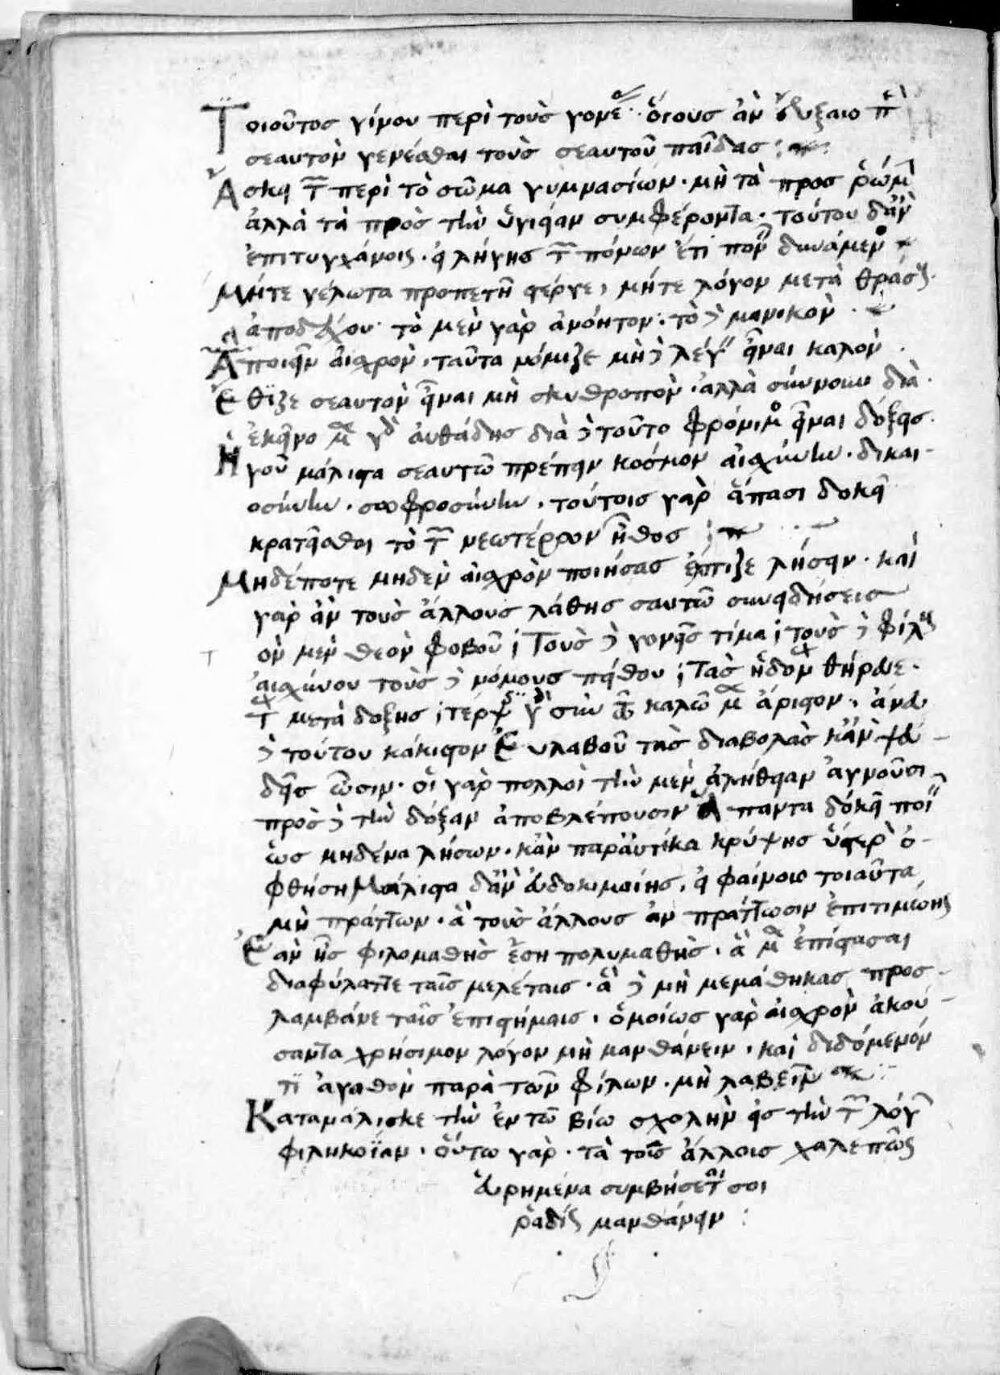 Τοιοῦτος γίνου περὶ τοὺς γονεῖς· οἵους ἂν εὔξαιο περὶ
σεαυτὸν γενέσθαι τοὺς σεαυτοῦ παῖδας :
Ἄσκει τῶν περὶ τὸ σῶμα γυμνασίων· μὴ τὰ προς ῥώμην
ἀλλὰ τὰ πρὸς τὴν ὑγιείαν συμφέροντα· τούτου δ' ἂν
ἐπιτυγχάνοις· εἰ λήγῃς τῶν πόνων ἔτι πονεῖν δυνάμενος
Μήτε γέλωτα προπετῆ στέργε, μήτε λόγον μετὰ θράσους
ἀποδέχου· τὸ μὲν γὰρ ἀνόητον· τὸ δὲ μανικὸν
Ἃ ποιεῖν αἰσχρὸν, ταῦτα νόμιζε μὴ δὲ λέγειν εἶναι καλὸν
Ἔθιζε σεαυτὸν εἶναι μὴ σκυθροπὸν· ἀλλὰ σύννουν διὰ
ἐκεῖνο μὲν γὰρ αὐθάδης διὰ δὲ τοῦτο φρόνιμος εἶναι δόξεις
Ἡγοῦ μάλιστα σεαυτῶ πρέπειν κόσμον αἰσχύνην· δικαι-
οσύνην· σωφροσύνην· τούτοις γὰρ ἅπασι δοκεῖ
κρατεῖσθαι τὸ τῶν νεωτέρρον ἦθος :
Μηδέποτε μηδὲν αἰσχρὸν ποιήσας ἔλπιζε λήσειν· καὶ
γὰρ ἂν τοὺς ἄλλους λάθης σαυτῶ συνειδήσεις
ὸν μὲν θεὸν φοβοῦ Τοὺς δὲ γονεῖς τίμα τοὺς δὲ φίλους
αἰσχύνου τοὺς δὲ νόμους πείθου Τὰς ἡδονὰς θήρευε
τὰς μετὰ δόξης τέρψις γὰρ σὺν τῶ καλῶ μὲν ἄριστον· ἄνευ
δὲ τούτου κάκιστον Εὐλαβοῦ τὰς διαβολὰς κἂν ψευ-
δεῖς ὦσιν· οἱ γὰρ πολλοὶ τὴν μὲν ἀλήθειαν ἀγνοῦσι
πρὸς δὲ τὴν δόξαν ἀποβλέπουσιν Ἃπαντα δόκει ποιεῖν
ὡς μηδένα λήσων· κἂν παραυτίκα κρύψης ὕστερον ὀ-
φθήση Μάλιστα δ' ἂν εὐδοκιμοίης, εἰ φαίνοιο τοιαῦτα
μὴ πράττων· ἃ τοὺς ἄλλους ἂν πράττωσιν ἐπιτιμώης
Ἐὰν ἦς φιλομαθὴς ἔση πολυμαθὴς· ἃ μὲν ἐπίστασαι
διαφύλαττε ταῖς μελέταις· ἃ δὲ μὴ μεμάθηκας προσ-
λαμβάνε ταῖς ἐπιστήμαις, ὁμοίως γὰρ αἰσχρὸν ἀκού-
σαντα χρήσιμον λόγον μὴ μανθάνειν, καὶ διδόμενόν
τι ἀγαθὸν παρὰ τῶν φίλων· μὴ λαβεῖν
Καταναλισκε τὴν ἐν τῶ βίω σχολὴν εἰς τὴν τῶν λόγων
φιληκοΐαν, οὕτω γὰρ· τὰ τοῖς ἄλλοις χαλεπῶς
εὑρημένα συμβήσεται σοι
ῥαδίως μανθάνειν :